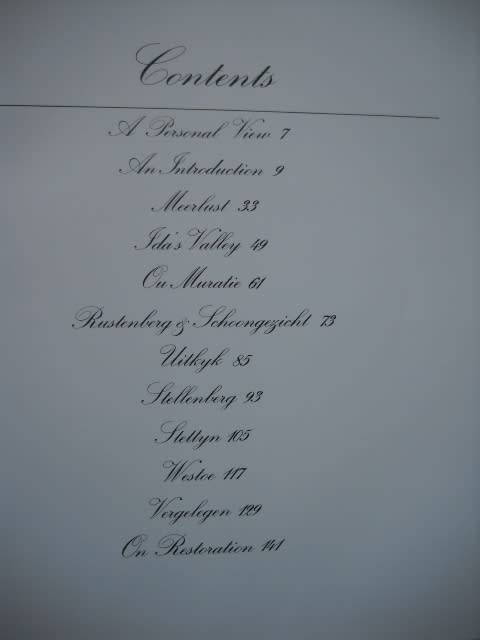 Contents
A Personal View 7
An Introduction 9
Meerlust 33
Ida's Valley 49
Ou Muratie 61
Rustenberg & Schoongezicht 73
Uitkyk 85
Stellenberg 93
Stettyn 105
Westoe 117
Vergelegen 129
On Restoration 141